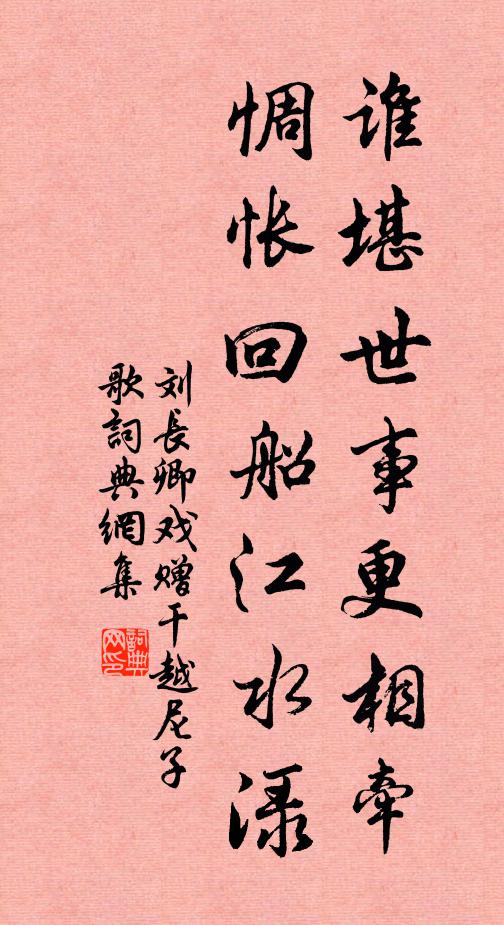 谁堪世事更相牵
惆怅回船江水渌
刘长卿戏赠干越尼子
歌詞典網集
詞典网印